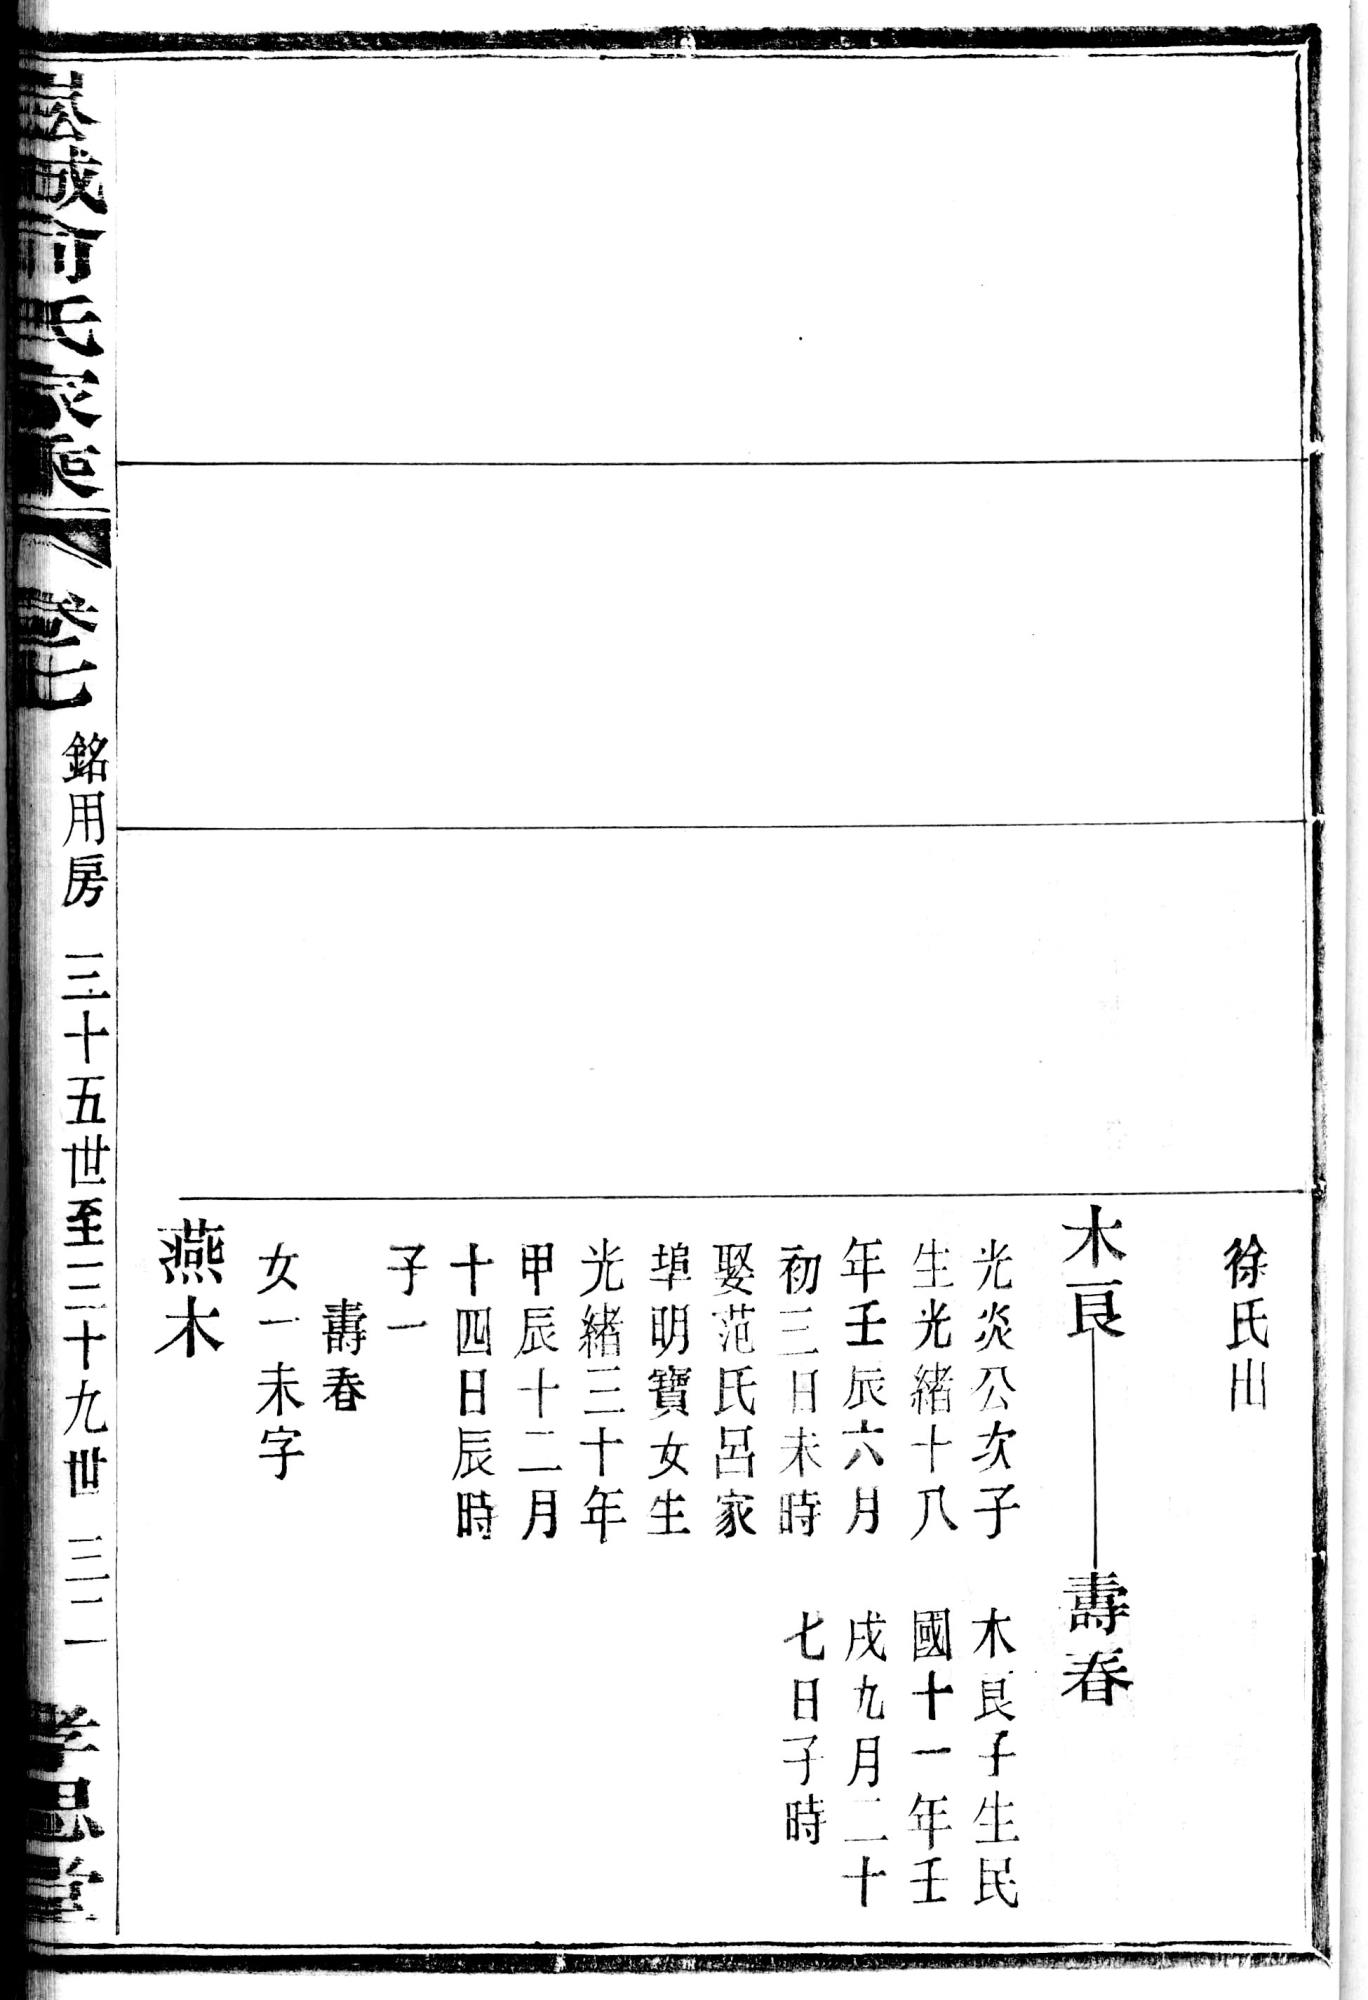 徐氏出
木良
壽春
光炎公次子
生光緒十八
年壬辰六月
初三日未時
娶范氏呂家
埠明寶女生
光緒三十年
甲辰十二月
十四日辰時
子一
壽春
女一未字
木良子生民
國十一年壬
戌九月二十
七日子時
燕木
城俞氏家乘
卷七
銘用房 三十五世至三十九世 三二
孝思堂